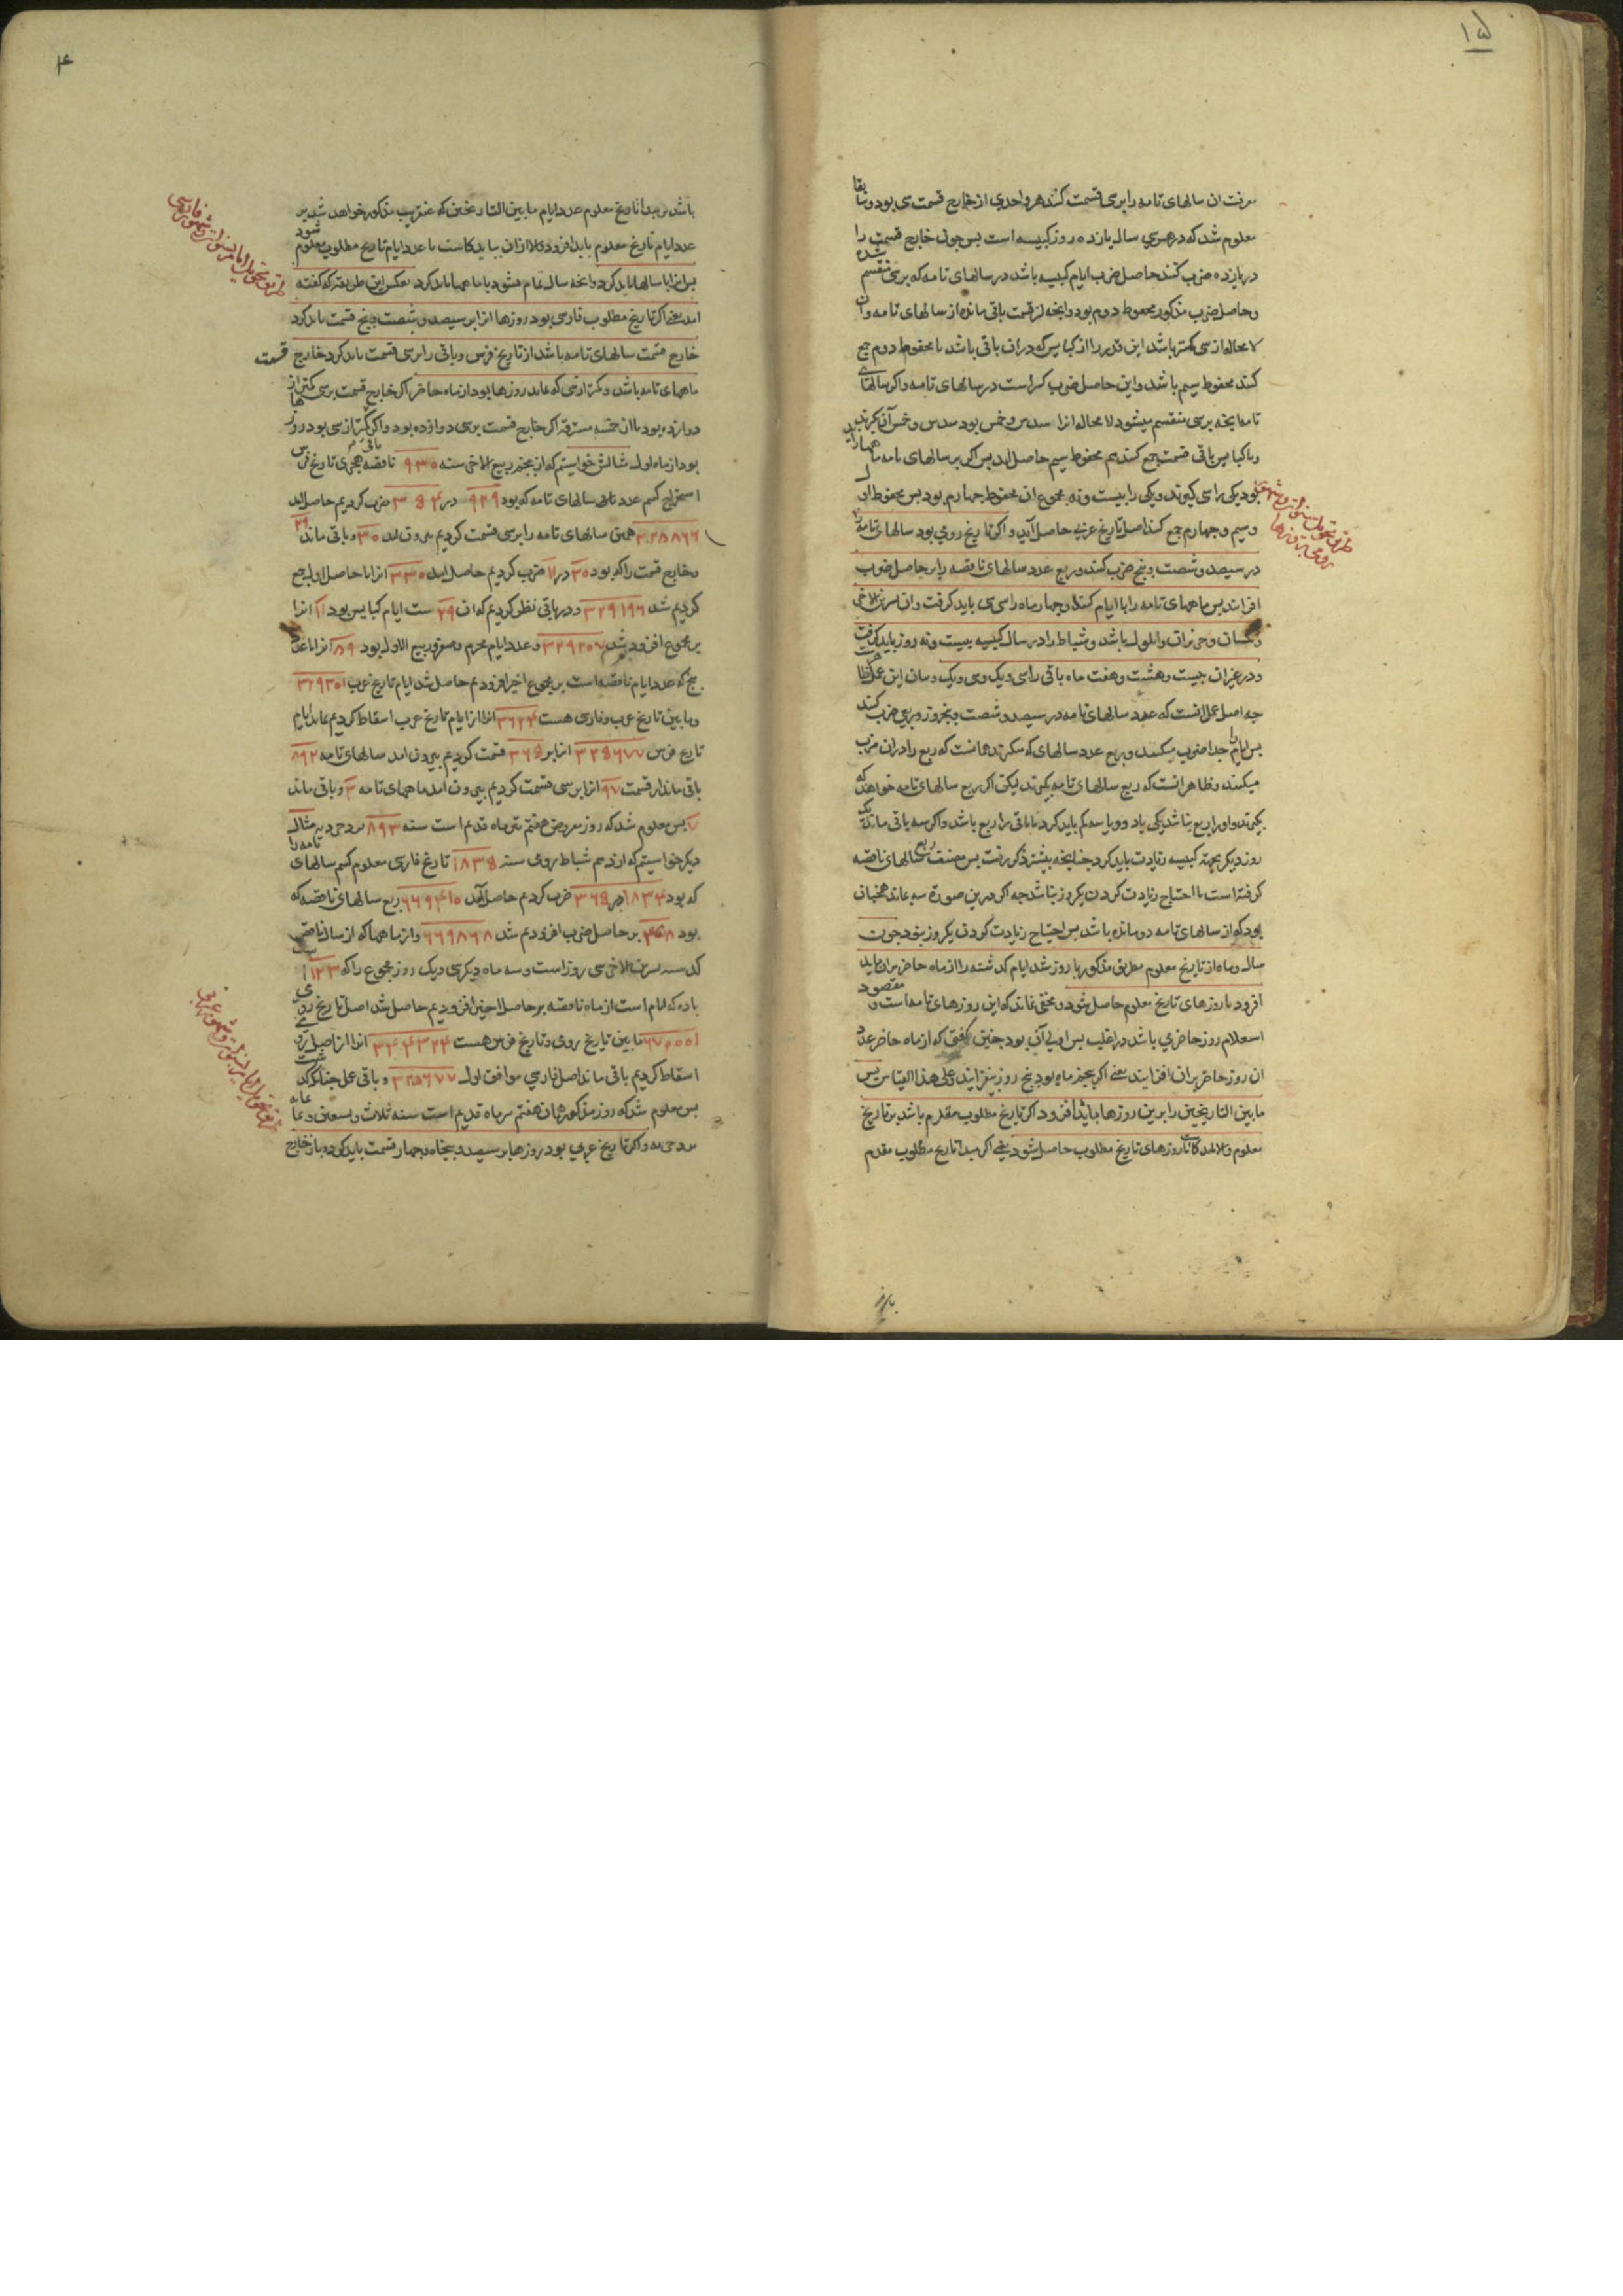 ۱۵
معرفت ان سالهای تامه را بر سی قسمت کنند هر واحدی از خارج قسمت سی بود و سابقا
معلوم شد که در هر سی سال یازده روز کبیسه است پس چون خارج قسمت را
در یازده ضرب کنند حاصل ضرب ایام کبیسه باشد در سالهای تامه که بر سی منقسم شده
و حاصل ضرب مذکور محفوظ دوم بود و انچه از قسمت باقی مانده از سالهای تامه و ان
لا محاله از سی کمتر باشد این قدر را از کبایس که در ان باقی باشد با محفوظ دوم جمع
کنند محفوظ سیم باشد و این حاصل ضرب کسر است در سالهای تامه و اگر سالهای
تامه بر سی منقسم میشود لا محاله انرا سدس و خمس بود سدس و خمس آن بگیرند
و با کبایس باقی قسمت جمع کنند هم محفوظ سیم حاصل اید پس اگر بر سالهای تامه ماهها زاید
بود یکی را سی گیرند و یکی را بیست و نه مجموع ان محفوظ چهارم بود پس محفوظ اول
و سیم و چهارم جمع کنند اصل تاریخ عربی حاصل آید و اگر تاریخ رومی بود سالهای تامه را
در سیصد و شصت و پنج ضرب کنند و ربع عدد سالهای ناقصه را بر حاصل ضرب
افزایند پس ماههای تامه را با ایام کنند و چهار ماه را سی سی باید گرفت و ان تشرین الاخر
و نیسان و حزیران و ایلول باشد و شباط را در سال کبیسه بیست و نه روز باید گرفت
و در غیر ان بیست و هشت و هفت ماه باقی را سی و یک سی و یک و سان این عمل
چه اصل عمل انست که عدد سالهای تامه در سیصد و شصت و پنجروز و ربعی ضرب کنند
پس ایام را جدا ضرب میکنند و ربع عدد سالهای که میگیرند همانست که ربع را در ان ضرب
میکنند و ظاهر انست که ربع سالهای تامه بگیرند لیکن اگر ربع سالهای تامه خواهند که
بگیرند و او را ربع نباشد یکی یا دو و یا سه کم باید کرد تا باقی را ربع باشد و اگر سه باقی ماند یک
روز دیگر بجهة کبیسه زیادت باید کرد چنانچه پیشتر ذکر رفت پس مصنف ربع سالهای ناقصه
گرفته است تا احتیاج زیادت کردن یکروز نباشد چه اگر درین صورة سه بماند همچنان
بود که از سالهای تامه دو مانده باشد پس احتیاج زیادت کردن یکروز نبود چون
سال و ماه از تاریخ معلوم بطریق مذکور با روز شد ایام گذشته را از ماه حاضر بران باید
افزود تا روزهای تاریخ معلوم حاصل شود و مخفی نماند که این روزهای تامه است و مقصود
استعلام روز حاضری باشد در اغلب پس اولی آن بود چنین گفتی که از ماه حاضر عدد
ان روز حاضر بران افزایند یعنی اگر پنجم ماه بود پنج روز بیفزایند و علی هذا القیاس پس
ما بین التاریخین را برین روزها باید افزود اگر تاریخ مطلوب مقدم باشد بر تاریخ
معلوم و الا بکاست تا روزهای تاریخ مطلوب حاصل شود یعنی اگر مبدا تاریخ مطلوب مقدم
۴
باشد بر مبدا تاریخ معلوم عدد ایام ما بین التاریخین که عنقریب مذکور خواهد شد بر
عدد ایام تاریخ معلوم باید افزود و الا ازان بباید کاست تا عدد ایام تاریخ مطلوب معلوم شود
پس انرا با سالها باید کرد و انچه سال تمام نشود با ماهها باید کرد بعکس این طریقه که گفته
امد یعنی اگر تاریخ مطلوب فارسی بود روزها انرا بر سیصد و شصت و پنج قسمت باید کرد
خارج قسمت سالهای تامه باشد از تاریخ فرس و باقی را بر سی قسمت باید کرد خارج قسمت
ماههای تامه باشد و کمتر از سی که بماند روزها بود از ماه حاضر اگر خارج قسمت بر سی کمتر از
دوازده بود یا از خمسه مسترقه اگر خارج قسمت بر سی دوازده بود و اگر باقی کمتر از سی بود روزها
بود از ماه اول مثالش خواستیم که از پنجم ربیع الاخر سنه ۹۳۰ ناقصه هجری تاریخ فرس
استخراج کنیم عدد سالهای تامه که بود ۹۲۹ در ۳۵۴ ضرب کردیم حاصل امد
۳۲۸۸۶۶ همین سالهای تامه را بر سی قسمت کردیم بیرون امد ۳۰ و باقی ماند ۲۹
و خارج قسمت را که بود ۳۰ در ۱۱ ضرب کردیم حاصل امد ۳۳۰ انرا با حاصل اول جمع
کردیم شد ۳۲۹۱۹۶ و در باقی نظر کردیم که ان ۲۹ است ایام کبایس بود ۱۱ انرا
بر مجموع افزودیم شد ۳۲۹۲۰۷ و عدد ایام محرم و صفر و ربیع الاول بود ۸۹ انرا با عدد
پنج که عدد ایام ناقصه است بر مجموع اخیر افزودیم حاصل شد ایام تاریخ عرب ۳۲۹۳۰۱
و ما بین تاریخ عرب و فارسی هست ۳۶۲۴ انرا از ایام تاریخ عرب اسقاط کردیم بماند ایام
تاریخ فرس ۳۲۵۶۷۷ انرا بر ۳۶۵ قسمت کردیم بیرون امد سالهای تامه ۸۹۲
باقی ماند از قسمت ۹۷ انرا بر سی قسمت کردیم بیرون امد ماههای تامه ۳ و باقی ماند
۷ پس معلوم شد که روز مفروض هفتم تیر ماه قدیم است سنه ۸۹۳ یزدجردیه مثال
دیگر خواستیم که از دهم شباط رومی سنه ۱۸۳۵ تاریخ فارسی معلوم کنیم سالهای تامه را
که بود ۱۸۳۴ در ۳۶۵ ضرب کردیم حاصل آمد ۶۶۹۴۱۰ ربع سالهای ناقصه که
بود ۴۵۸ بر حاصل ضرب افزودیم شد ۶۶۹۸۶۸ و از ماهها که از سال ناقص
تشرین الاخر سی روز است و سه ماه دیگر سی و یک روز مجموع را که ۱۲۳
با ده که ایام است از ماه ناقصه بر حاصل اخیر افزودیم حاصل شد اصل تاریخ رومی
۶۷۰۰۰۱ ما بین تاریخ رومی و تاریخ فرس هست ۳۴۴۳۲۴ انرا از اصل رومی
اسقاط کردیم باقی ماند اصل فارسی موافق اول ۳۲۵۶۷۷ و باقی عمل چنانکه گذشت
پس معلوم شد که روز مذکور همان هفتم تیر ماه قدیم است سنه ثلاث و تسعین و ثمانمایه
یزدجردیه و اگر تاریخ عربی بود روزها بر سیصد و پنجاه و چهار قسمت باید کرد و باز خارج